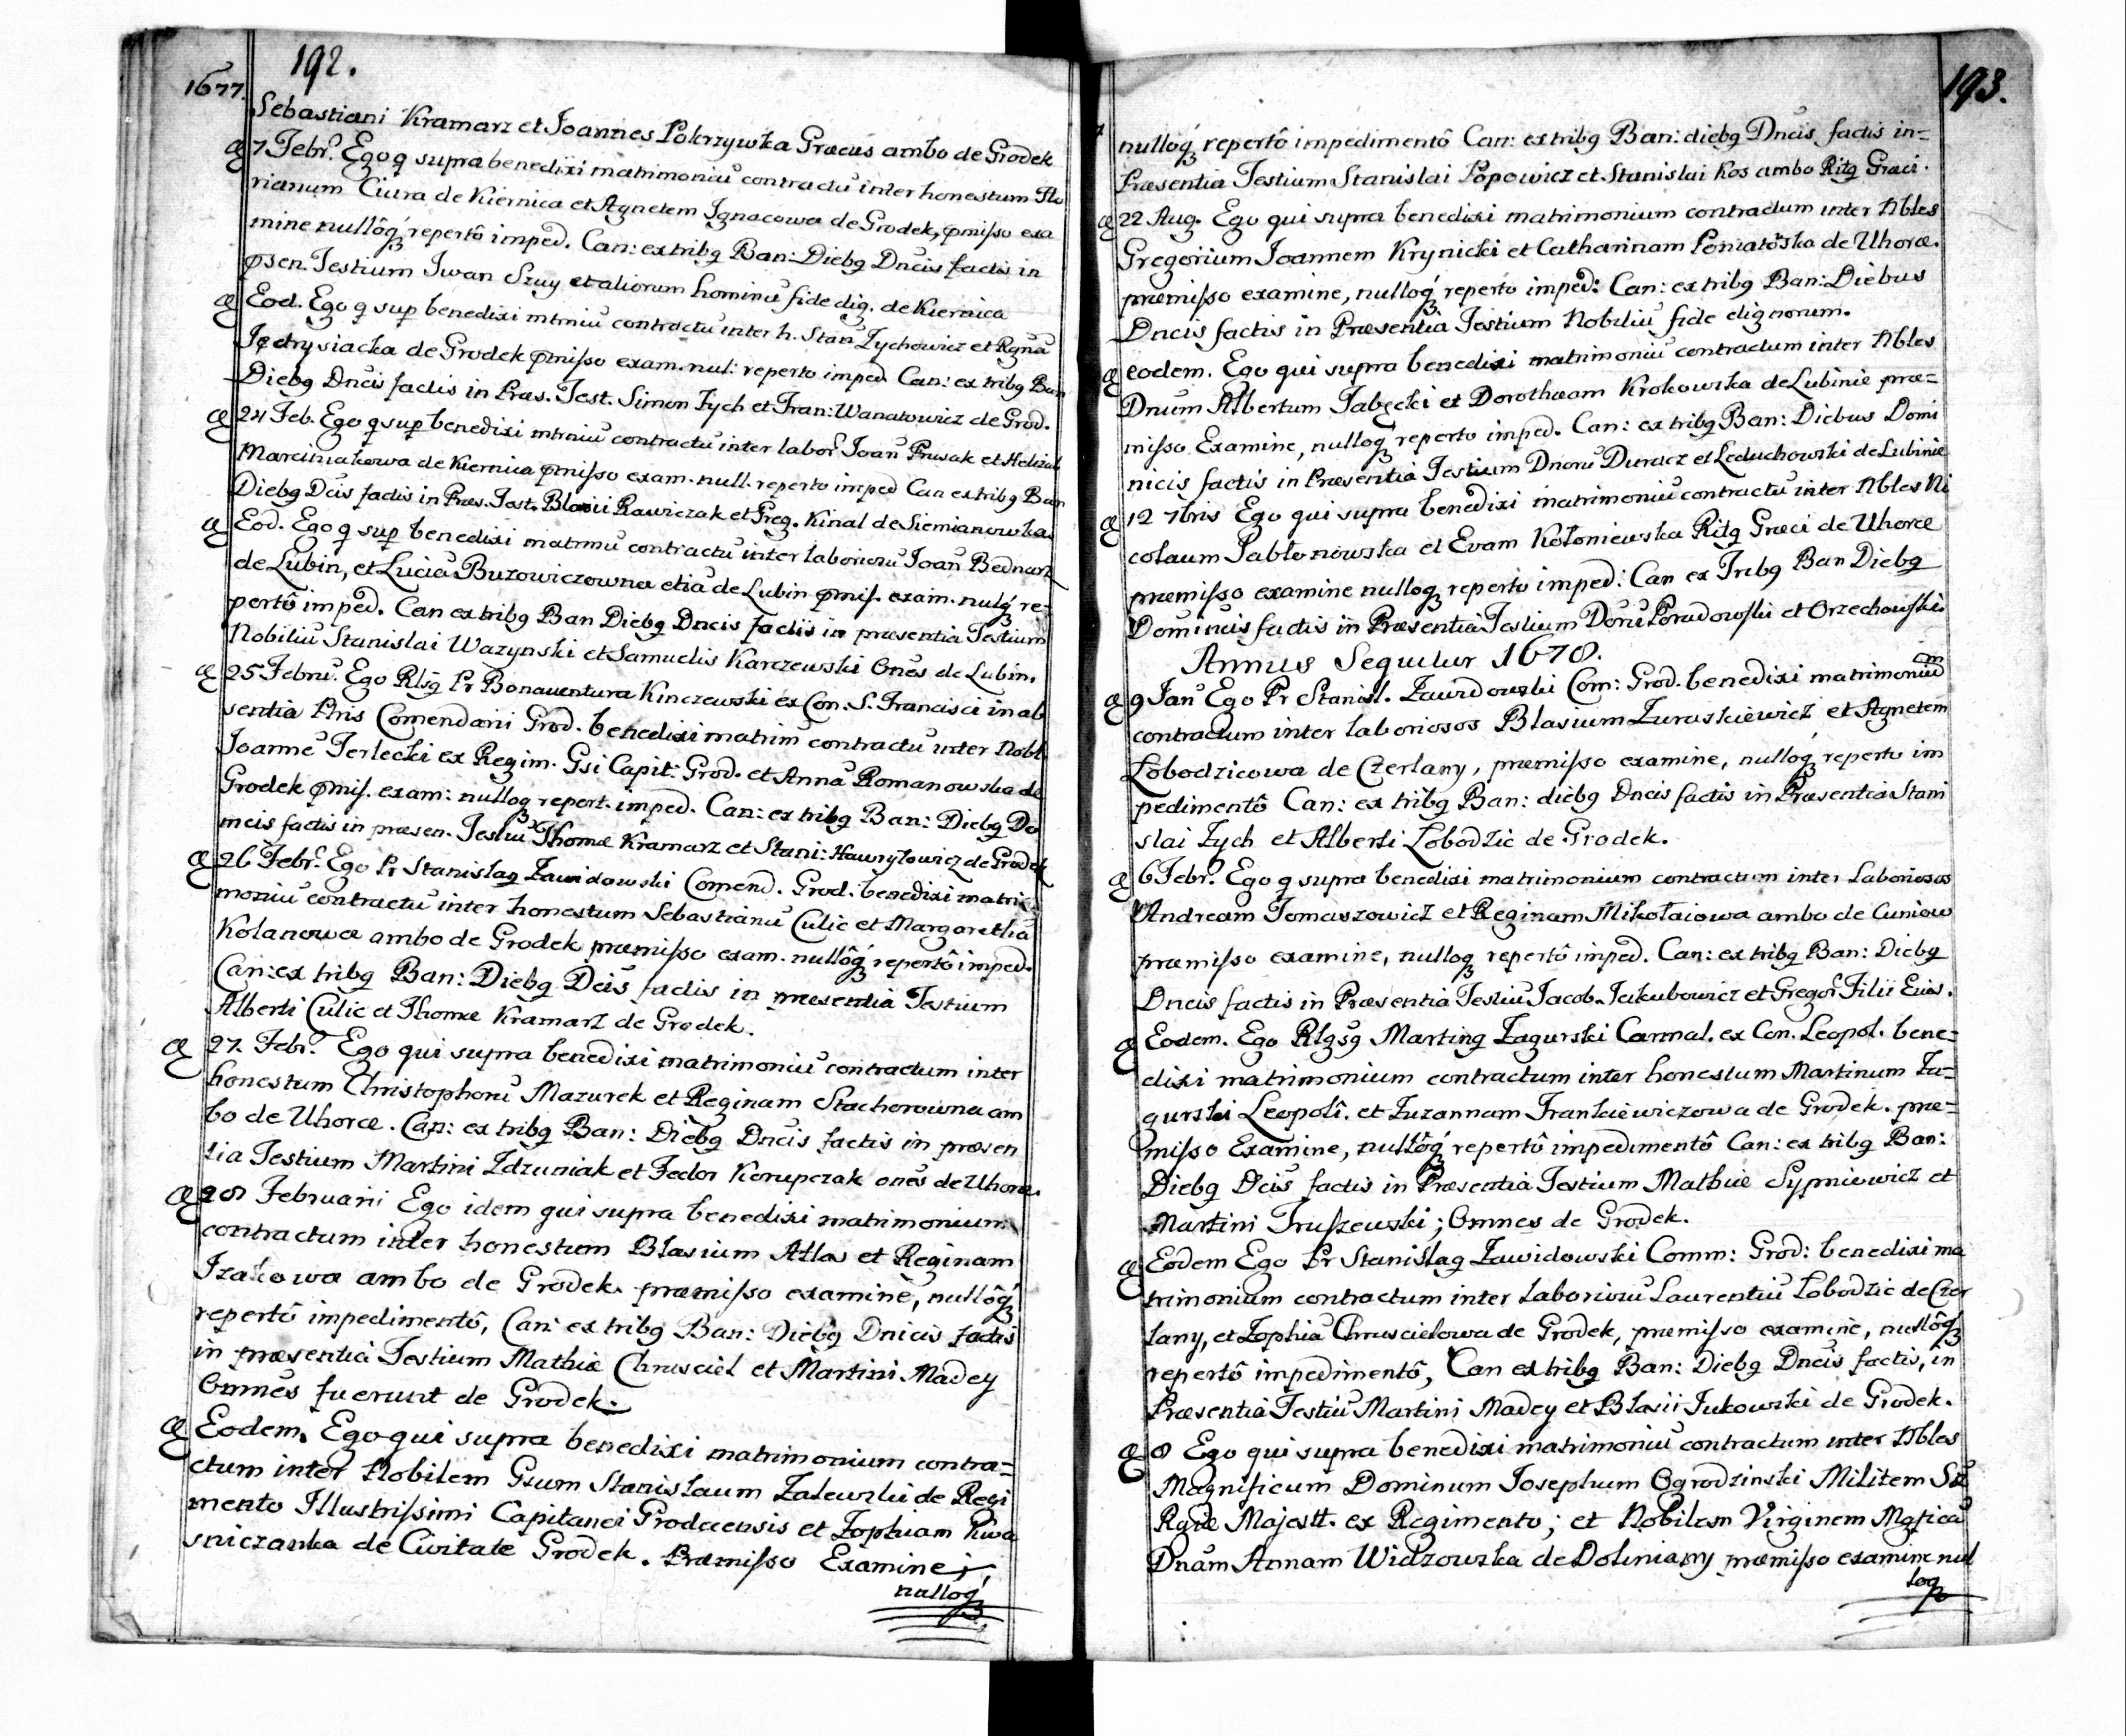 192.
1677.
Sebastiani Kramarz et Joannes Pokrzywka Græcus ambo de Grodek
7 Febr. Ego q supra benedixi matrimoniū contractū inter honestum Flo
rianum Ciura de Kiernica et Agnetem Ignacowa de Grodek, pmisso exa
mine nullôq repertô imped. Can: ex tribq Ban: Diebq Dncis factis in
psen. Testium Iwan Szuy et aliorum hominū fide dig. de Kiernica
Eod. Ego q sup benedixi mtrniū contractū inter h. Stan Zychowicz et Regnā
Jędrysiacka de Grodek pmisso exam. nul: reperto imped Can: ex tribq Ban
Diebq Dncis factis in Præs. Test. Simon Zych et Fran: Wanatowicz de Grod.
24 Feb. Ego q sup benedixi mtrniū contractū inter labor Joan Prusak et
Marciniakowa de Kiernica pmisso exam. null. reperto imped Can ex tribq Ban
Diebq Dcis factis in Præs. Test. Blasii Rawiczak et Greg. Kinal de Siemianowka
Eod. Ego q sup benedixi matrmū contractū inter laboriosū Joan Bednarz
de Lubin, et Luciā Buzowiczowna etiā de Lubin pmis. exam. nulq re=
pertô imped. Can ex tribq Ban Diebq Dncis factis in præsentia Testium
Nobiliū Stanislai Wazynski et Samuelis Karczewski Ones de Lubin.
25 Febru. Ego Rlsq Pr Bonauentura Kinczewski ex Con. S. Francisci in ab
sentia Pris Comendarii Grod. benedixi matrim contractū inter Nobl
Joannē Terlecki ex Regim. Gsi Capit. Grod. et Annā Romanowska de
Grodek pmis. exam: nulloq repert. imped. Can: ex tribq Ban: Diebq Do
mcis factis in præsen. Testiū Thomæ Kramarz et Stani: Hawryłowicz de Grodek
26 Febr. Ego Pr Stanislaq Zawidowski Comend. Grod. benedixi matri
moniū contractū inter honestum Sebastianū Culic et Margarethā
Kolanowa ambo de Grodek præmisso exam. nullôq repertô imped.
Can: ex tribq Ban: Diebq Dcis factis in præsentia Testium
Alberti Culic et Thomæ Kramarz de Grodek.
27. Febr. Ego qui supra benedixi matrimoniū contractum inter
honestum Christophorū Mazurek et Reginam Stachorowna am
bo de Uhorce. Can: ex tribq Ban: Diebq Dncis factis in præsen
tia Testium Martini Zdzuniak et Fedor Korupczak ones de Uhorce.
28 Februarii Ego idem qui supra benedixi matrimonium
contractum inter honestum Blasium Atlas et Reginam
Izakowa ambo de Grodek. præmisso examine, nullôq
repertô impedimentô, Can: ex tribq Ban: Diebq Dnicis factis
in præsentia Testium Mathiæ Chrusciel et Martini Madey
Omnes fuerunt de Grodek.
Eodem. Ego qui supra benedixi matrimonium contra=
ctum inter Nobilem Gsum Stanislaum Zalewski de Regi
mento Illustrissimi Capitanei Grodecensis et Zophiam Kwa
sniczanka de Civitate Grodek. Præmisso Examine
nulloq
193.
nulloq repertô impedimentô Can: ex tribq Ban: diebq Dncis factis in=
Præsentia Testium Stanislai Popowicz et Stanislai Kos ambo Ritq Græci.
22 Aug. Ego qui supra benedixi matrimonium contractum inter Nbles
Gregorium Joannem Krynicki et Catharinam Poniatoska de Uhorce.
præmisso examine, nulloq reperto imped: Can: ex tribq Ban: Diebus
Dncis factis in Præsentia Testium Nobiliū fide dignorum.
eodem. Ego qui supra benedixi matrimoniū contractum inter Nbles
Dnum Albertum Jabęcki et Dorotheam Krokowska de Lubinie præ=
misso Examine, nulloq reperto imped. Can: ex tribq Ban: Diebus Domi
nicis factis in Præsentia Testium Dnorū Duracz et Leduchowski de Lubinie
12 7bris Ego qui supra benedixi matrimoniū contractū inter Nbles Ni
colaum Jabłonowska et Evam Kołoniewska Ritq Græci de Uhorce
præmisso examine nulloq reperto imped: Can ex Tribq Ban Diebq
Dominicis factis in Præsentia Testium Donū Poradowski et Orzechowski
Annus Sequitur 1678.
9 Jan Ego Pr Stanisl. Zawidowski Com: Grod. benedixi matrimonium
contractum inter laboriosos Blasium Zuraskiewicz et Agnetem
Lobodzicowa de Czerlany, præmisso examine, nulloq reperto im
pedimentô Can: ex tribq Ban: diebq Dncis factis in Præsentia Stani
slai Zych et Alberti Lobodzic de Grodek.
6 Febr. Ego q supra benedixi matrimonium contractum inter Laboriosos
Andream Tomaszowicz et Reginam Mikołaiowa ambo de Cuniow
præmisso examine, nulloq repertô imped. Can: ex tribq Ban: Diebq
Dncis factis in Præsentia Testiū Jacob. Jakubowicz et Gregor Filii Eius.
Eodem. Ego Rlgsq Martinq Zagurski Carmel. ex Con. Leopol. bene=
dixi matrimonium contractum inter honestum Martinum Za=
gurski Leopoli. et Zuzannam Frankiewiczowa de Grodek. præ=
misso Examine, nullôq repertô impedimentô Can: ex tribq Ban:
Diebq Dcis factis in Præsentia Testium Mathiæ Sypniewicz et
Martini Truszewski; Omnes de Grodek.
Eodem Ego Pr Stanislaq Zawidowski Comm: Grod: benedixi ma
trimonium contractum inter Laboriosū Laurentiū Lobodzic de Czer
lany, et Zophiā Chruscielowa de Grodek, præmisso examine, nullôq
repertô impedimentô, Can ex tribq Ban: Diebq Dncis factis, in
Præsentia Testiū Martini Madey et Blasii Zukowski de Grodek.
8 Ego qui supra benedixi matrimoniū contractum inter Nbles
Magnificum Dominum Josephum Ogrodzinski Militem Sæ
Rgiæ Majestt. ex Regimento; et Nobilem Virginem Mgficā
Dnam Annam Widzowska de Doliniany præmisso examine nul
loq